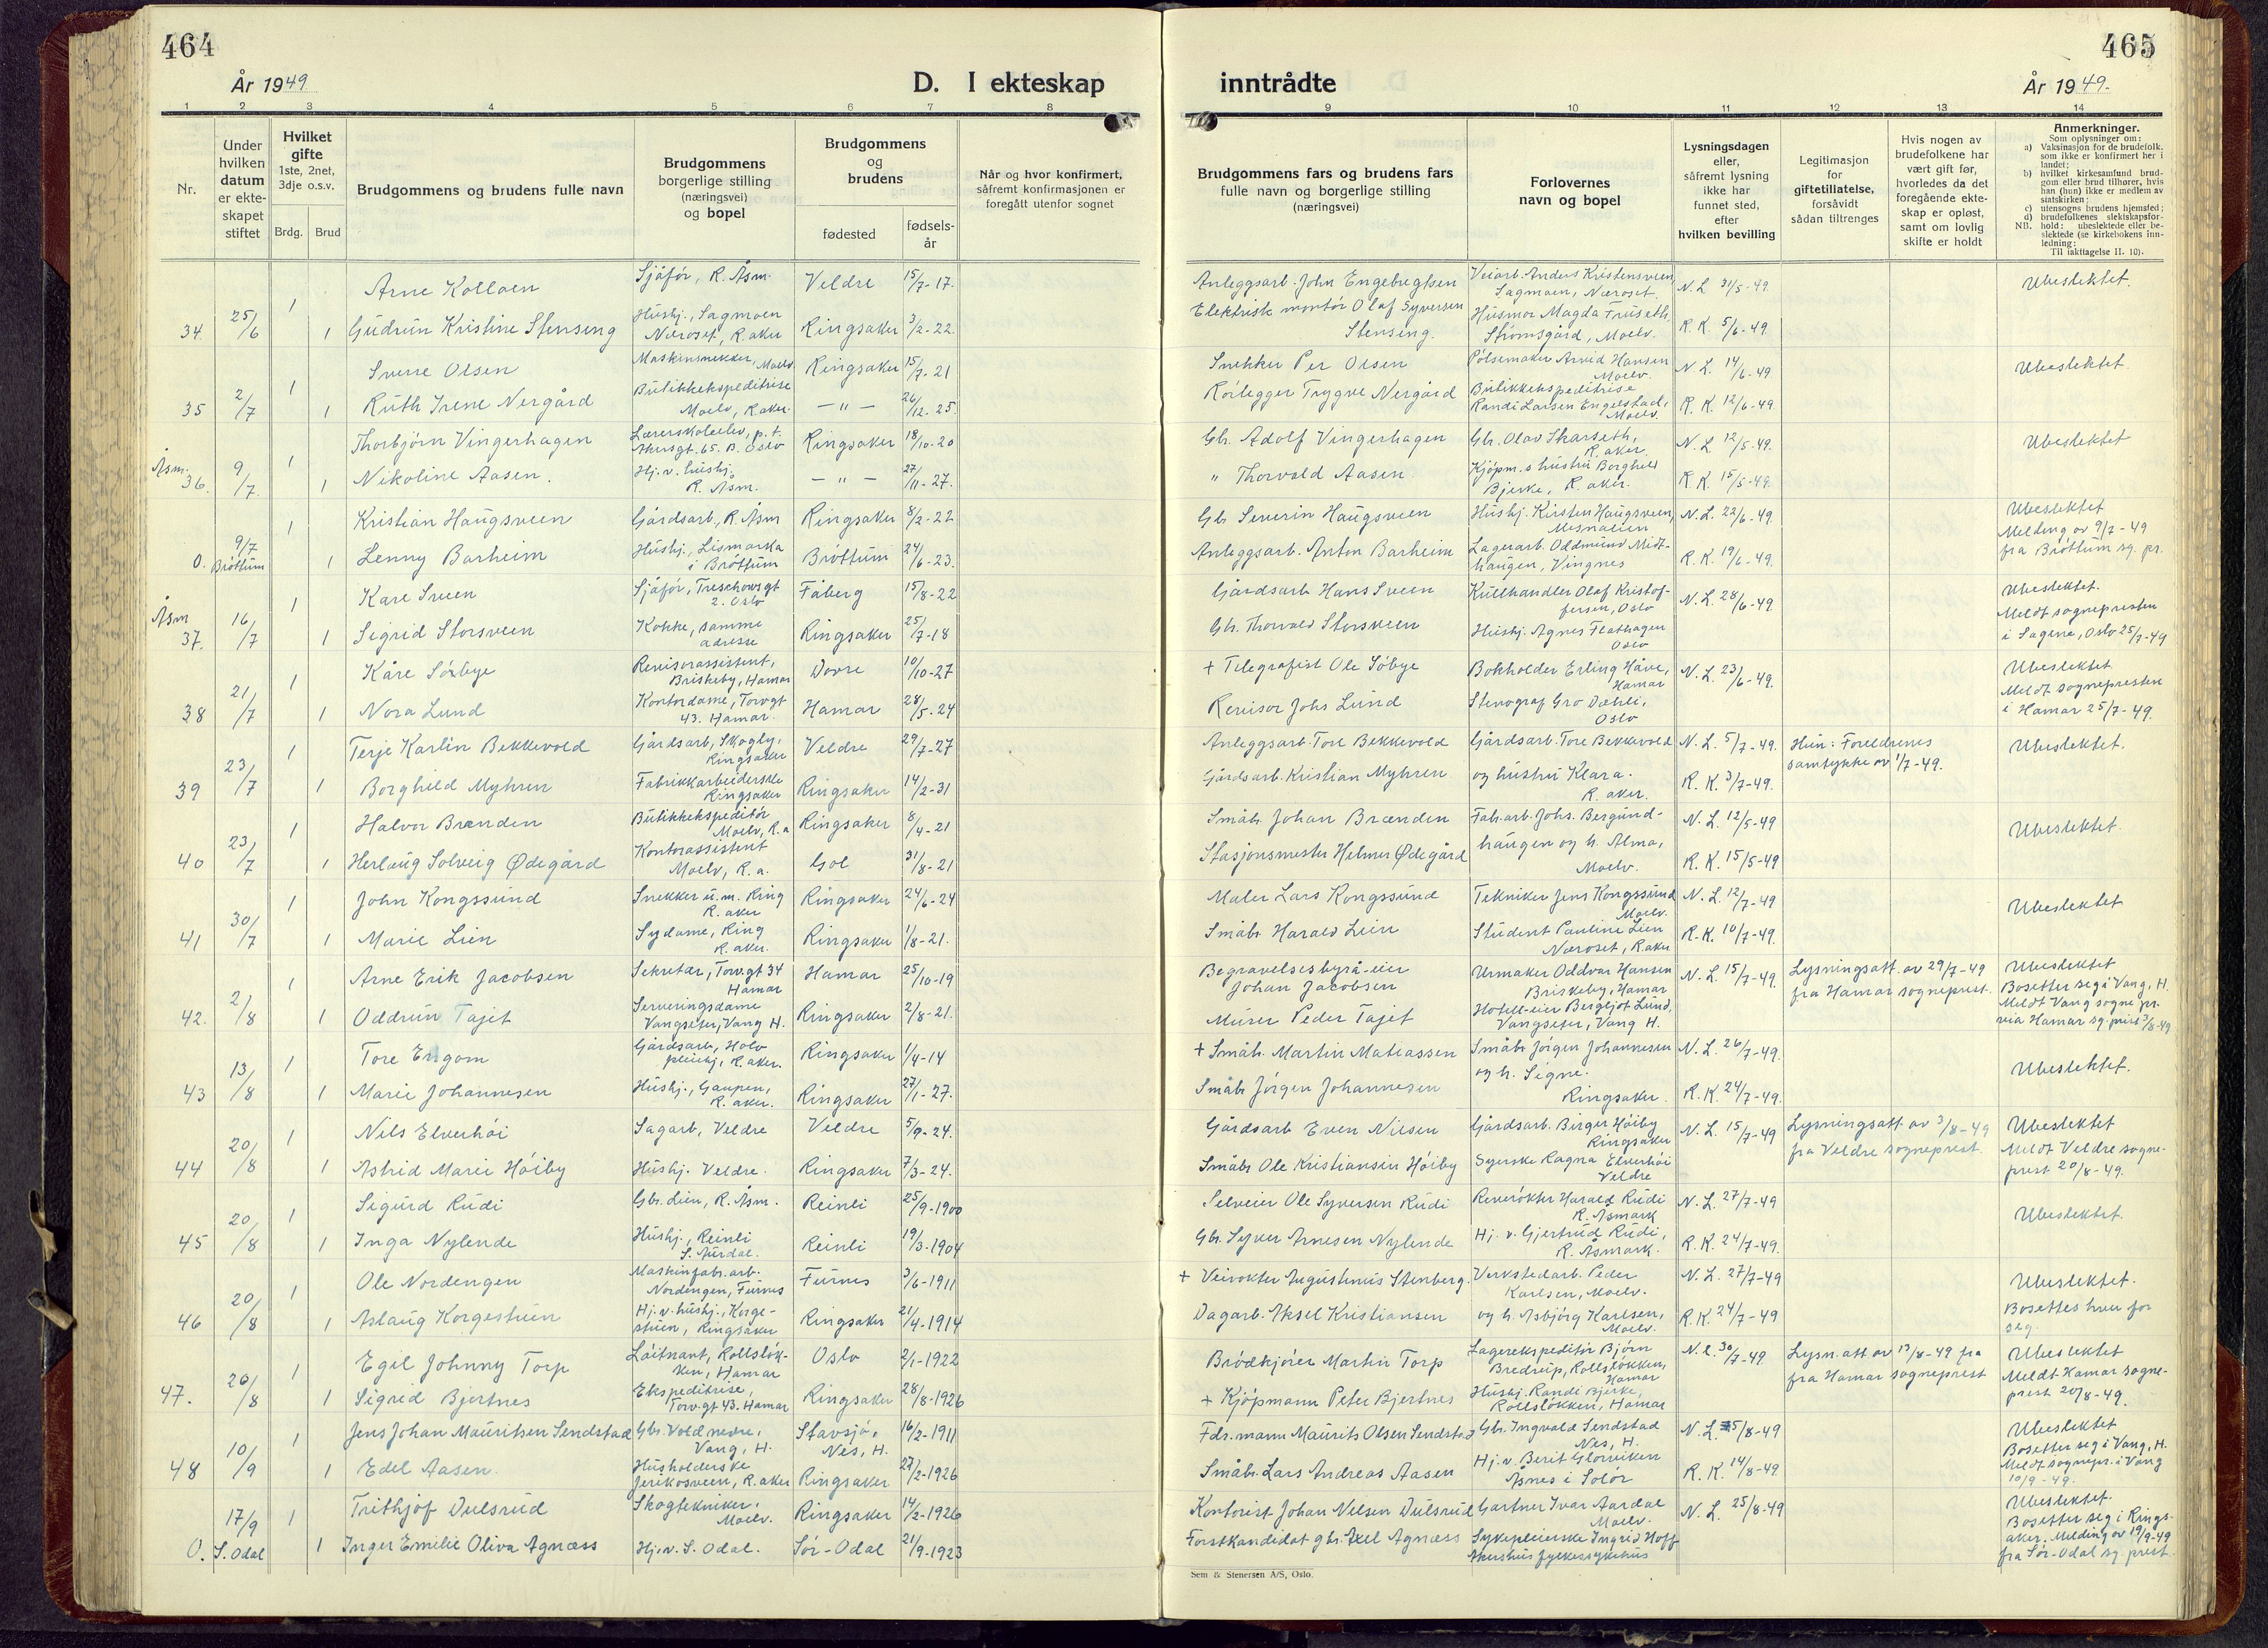 464
År 1949
D. I ekteskap
1 2 3 4 5 6 7 8
Nr.
Under hvilken datum er ekteskapet stiftet
Hvilket gifte
1ste, 2net, 3dje o.s.v.
Brdg. Brud
Brudgommens og brudens fulle navn
Brudgommens borgerlige stilling (næringsvei) og bopel
Brudgommens og brudens
fødested
fødsels-år
Når og hvor konfirmert, såfremt konfirmasjonen er foregått utenfor sognet
Arne Kolloen Sjåfór, R. Åsm. Veldre 15/7-17.
34 25/6 1 1 Gudrun Kristine Stenseng Hushj., Sagmoen Næroset, R.aker Ringsaker 3/2-22.
Sverre Olsen Maskinsnekker, Moelv Ringsaker 15/7-21
35 2/7 1 1 Ruth Irene Nergård Butikkekspeditrise Moelv, R.aker. — " — 26/12-25.
Thorbjörn Vingerhagen Lærerskoleelev, p.t. Akersgt. 65. B. Oslo Ringsaker 18/10-20
Åsm. 36. 9/7. 1 1 Nikoline Aasen. Hj.v. hushj. R. Åsm. — " — 27/11-27.
Kristian Haugsveen Gårdsarb., R. Åsm Ringsaker 8/2-22
0. 9/7 Bröttum 1 1 Lenny Barheim Hushj., Lismarka i Bröttum Bröttum 24/6-23.
Kare Sveen Sjåför, Treschowsgt 2. Oslo Fåberg 15/8-22
Åsm 37. 16/7 1 1 Sigrid Storsveen Kokke, samme adresse Ringsaker 25/7-18
Kåre Sørbye Revisorassistent, Briskeby, Hamar Dovre 10/10-27
38 21/7 1 1 Nora Lund Kontordame, Torvgt 43. Hamar. Hamar 28/5-24
Terje Karlin Bekkevold Gårdsarb, Skogly, Ringsaker Veldre 29/7-27
39 23/7 1 1 Borghild Myhren Fabrikkarbeiderske Ringsaker Ringsaker 14/2-31
Halvor Brænden Butikkekspeditör Moelv, R.a Ringsaker 8/4-21
40 23/7 1 1 Herlaug Solveig Ødegård Kontorassistent Moelv, R.a. Gol 31/8-21
John Kongssund Snekker u.m. Ring R. aker Ringsaker 24/6-24
41 30/7 1 1 Marie Lien Sydame, Ring R. aker. Ringsaker 1/8-21.
Arne Erik Jacobsen Sekretær, Torv.gt 34 Hamar Hamar 25/10-19
42. 2/8 1 1 Oddrun Tajet Serveringsdame Vangseter, Vang H. Ringsaker 2/8-21.
Tore Engom Gårdsarb, Holo pleiehj, R.aker. Ringsaker 1/4-14
43 13/8 1 1 Marie Johannesen Hushj., Gaupen, R. aker. Ringsaker 27/1-27.
Nils Elverhöi Sagarb, Veldre Veldre 5/9-24.
44 20/8 1 1 Astrid Marie Höiby Hushj. Veldre. Ringsaker 7/3-24.
Sigurd Rudi Gbr. Lien, R. Åsm. Reinli 25/9-1900
45 20/8 1 1 Inga Nylende Hushj., Reinli S. Aurdal. Reinli 19/3-1904
Ole Nordengen Maskinfabr.arb. Nordengen, Furnes Furnes 3/6-1911
46 20/8 1 1 Aslaug Korgestuen Hj.v. hushj., Korgestuen, Ringsaker Ringsaker 21/4-1914
Egil Johnny Torp Löitnant, Rollslökken, Hamar Oslo 2/1-1922
47. 20/8 1 1 Sigrid Bjertnes Ekspeditrise, Torv.gt 43. Hamar Ringsaker 28/8-1926
Jens Johan Mauritsen Sendstad Gbr. Vold nedre, Vang, H. Stavsjö, Nes, H. 16/2-1911
48 10/9 1 1 Edel Aasen. Husholderske Jerikosveen, R.aker Ringsaker 27/2-1926
Trithjof Dulsrud Skogtekniker, Moelv. Ringsaker 14/2-1926
0. 17/9 S. Odal 1 1 Inger Emilie Oliva Agnæss Hj.v. S. Odal. Sör-Odal 21/9-1923
465
inntrådte
År 1949.
9 10 11 12 13 14
Brudgommens fars og brudens fars fulle navn og borgerlige stilling (næringsvei)
Forlovernes navn og bopel
Lysningsdagen eller, såfremt lysning ikke har funnet sted, efter hvilken bevilling
Legitimasjon for giftetillatelse, forsåvidt sådan tiltrenges
Hvis nogen av brudefolkene har vært gift før, hvorledes da det foregående ekteskap er opløst, samt om lovlig skifte er holdt
Anmerkninger.
Som oplysninger om:
a) Vaksinasjon for de brudefolk, som ikke er konfirmert her i landet;
b) hvilket kirkesamfund brudgom eller brud tilhører, hvis han (hun) ikke er medlem av statskirken;
c) utensogns brudens hjemsted;
d) brudefolkenes slektskapsforhold: ubeslektede eller beslektede (se kirkebokens innledning:
NB. Til iakttagelse II. 10).
Anleggsarb. John Engebregtsen Veiarb. Anders Kristensveen, Sagmoen, Næroset. N.L 31/5-49. Ubeslektet.
Elektrisk montör Olaf Syversen Stenseng. Husmor Magda Fruseth, Strömsgård, Moelv. R.K. 5/6-49.
Snekker Per Olsen Pölsemaker Arvid Hansen Moelv. N.L. 14/6-49 Ubeslektet.
Rörlegger Trygve Nergård Butikkekspeditrise Randi Larsen Engelstad, Moelv. R.K. 12/6-49
Gbr. Adolf Vingerhagen Gbr. Olav Skarseth, R.aker. N.L 12/5-49. Ubeslektet
" Thorvald Aasen Kjöpm.s hustru Borghild Bjerke, R. aker. R.K. 15/5-49.
Gbr Severin Haugsveen Hushj. Kirsten Haugsveen, Mesnalien N.L. 22/6-49. Ubeslektet
Anleggsarb. Anton Barheim Lagerarb. Oddmund Midthaugen, Vingnes R.K. 19/6-49. Melding av 9/7-49 fra Bröttum sg. pr.
Gårdsarb Hans Sveen Kullhandler Olaf Kristoffersen, Oslo N.L. 28/6-49 Ubeslektet.
Gbr. Thorvald Storsveen Hushj. Agnes Flathagen Oslo Meldt sognepresten i Sagene, Oslo 25/7-49
+ Telegrafist Ole Söbye Bokholder Erling Håve, Hamar N.L. 23/6-49. Ubeslektet
Revisor Johs Lund Stenograf Gro Dæhli, Oslo Meldt sognepresten i Hamar 25/7-49.
Anleggsarb. Tore Bekkevold Gårdsarb. Tore Bekkevold N.L. 5/7-49. Hun: Foreldrenes samtykke av 1/7-49. Ubeslektet.
Gårdsarb. Kristian Myhren og hustru Klara. R. aker. R.K. 3/7-49.
Småbr. Johan Brænden Fab.arb. Johs. Bergund- N.L. 12/5-49 Ubeslektet.
Stasjonsmester Helmer Ødegård haugen og h. Alma, Moelv. R.K. 15/5-49
Maler Lars Kongssund Tekniker Jens Kongssund Moelv. N.L. 12/7-49 Ubeslektet
Småbr Harald Lien Student Pauline Lien Næroset, R.aker R.K. 10/7-49.
Begravelsesbyrå-eier Johan Jacobsen Urmaker Oddvar Hansen Briskeby, Hamar N.L. 15/7-49. Lysningsatt. av 29/7-49 fra Hamar sogneprest. Ubeslektet
Murer Peder Tajet Hotell-eier Bergljot Lund, Vangseter, Vang H. Bosetter seg i Vang, H. Meldt Vang sogne pr. via Hamar sg. prest 3/8-49
+ Småbr. Martin Matiassen Småbr Jörgen Johannesen N.L. 26/7-49. Ubeslektet.
Småbr Jörgen Johannesen og h. Signe. Ringsaker. R.K. 24/7-49.
Gårdsarb Even Nilsen Gårdsarb. Birger Höiby Ringsaker N.L. 15/7-49 Lysningsatt. av 3/8-49 fra Veldre sogneprest. Ubeslektet
Småbr Ole Kristiansen Höiby Syerske Ragna Elverhöi Veldre Meldt Veldre sogneprest 20/8-49.
Selveier Ole Syversen Rudi Reverökter Harald Rudi R. Åsmark N.L. 27/7-49 Ubeslektet.
Gbr. Syver Arnesen Nylende Hj. v. Gjertrud Rudi, R. Åsmark. R.K. 24/7-49.
+ Veivokter Augustinus Stenberg. Verkstedarb. Peder Karlsen, Moelv. N.L. 27/7-49 Ubeslektet.
Dagarb. Aksel Kristiansen og h. Asbjörg Karlsen, Moelv. R.K. 24/7-49 Bosettes hver for seg.
Brödkjörer Martin Torp Lagerekspeditör Björn Bredrup, Rollslökken, Hamar N.L. 30/7-49 Lysn.att av 13/8-49 fra fra Hamar sogneprest Ubeslektet
+ Kjöpmann Peter Bjertnes Hushj. Randi Bjerke, Rollslökken, Hamar Meldt Hamar sogneprest 20/8-49.
Fdr.mann Maurits Olsen Sendstad Gbr. Ingvald Sendstad Nes, H. N.L. 5/8-49 Ubeslektet
Småbr. Lars Andreas Aasen Hj.v. Berit Glorviken Åsnes i Solör R.K. 14/8-49 Bosetter seg i Vang, H. Meldt sognepr. i Vang 10/9-49.
Kontorist Johan Nilsen Dulsrud Gartner Ivar Aardal Moelv. N.L. 25/8-49 Ubeslektet.
Forstkandidat gbr. Axel Agnæss Sykepleierske Ingrid Hoff Akershus fylkessykehus Bosetter seg i Ringsaker. Melding av 19/9-49 fra Sör-Odal sg. prest.
Sem & Stenersen A/S, Oslo.